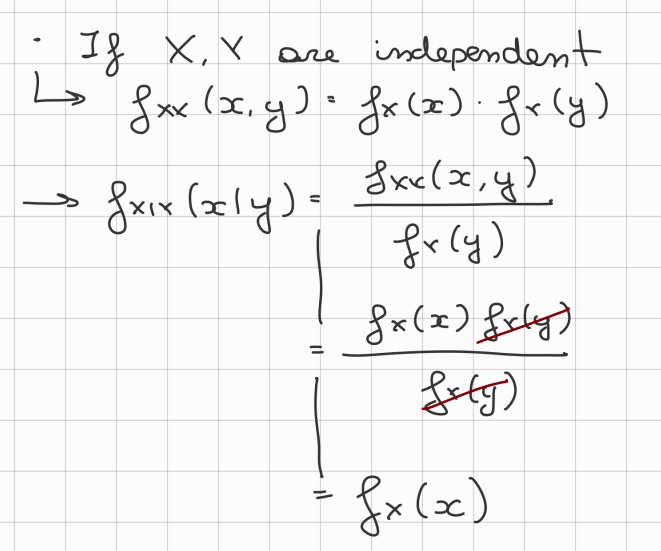 · If X, Y are independent
↳ f_XY (x, y) = f_X (x) · f_Y (y)
→ f_X|Y (x|y) = f_XY (x, y) / f_Y (y)
= f_X (x) f_Y (y) / f_Y (y)
= f_X (x)